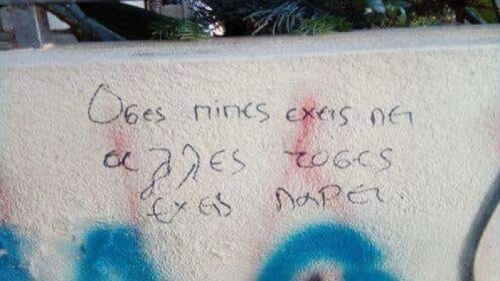 Οσες πιπες εχεις πει
αλλες τοσες
εχεις παρει.